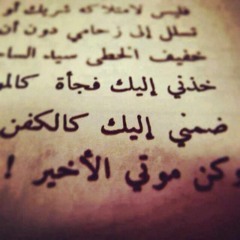 فليس لامتلاكه شريك أو
تسلل إلى زحامي دون أن
خفيف الخطى سيد السا
خذني إليك فجأة كالمو
ضمني إليك كالكفن
وكن موتي الأخير !